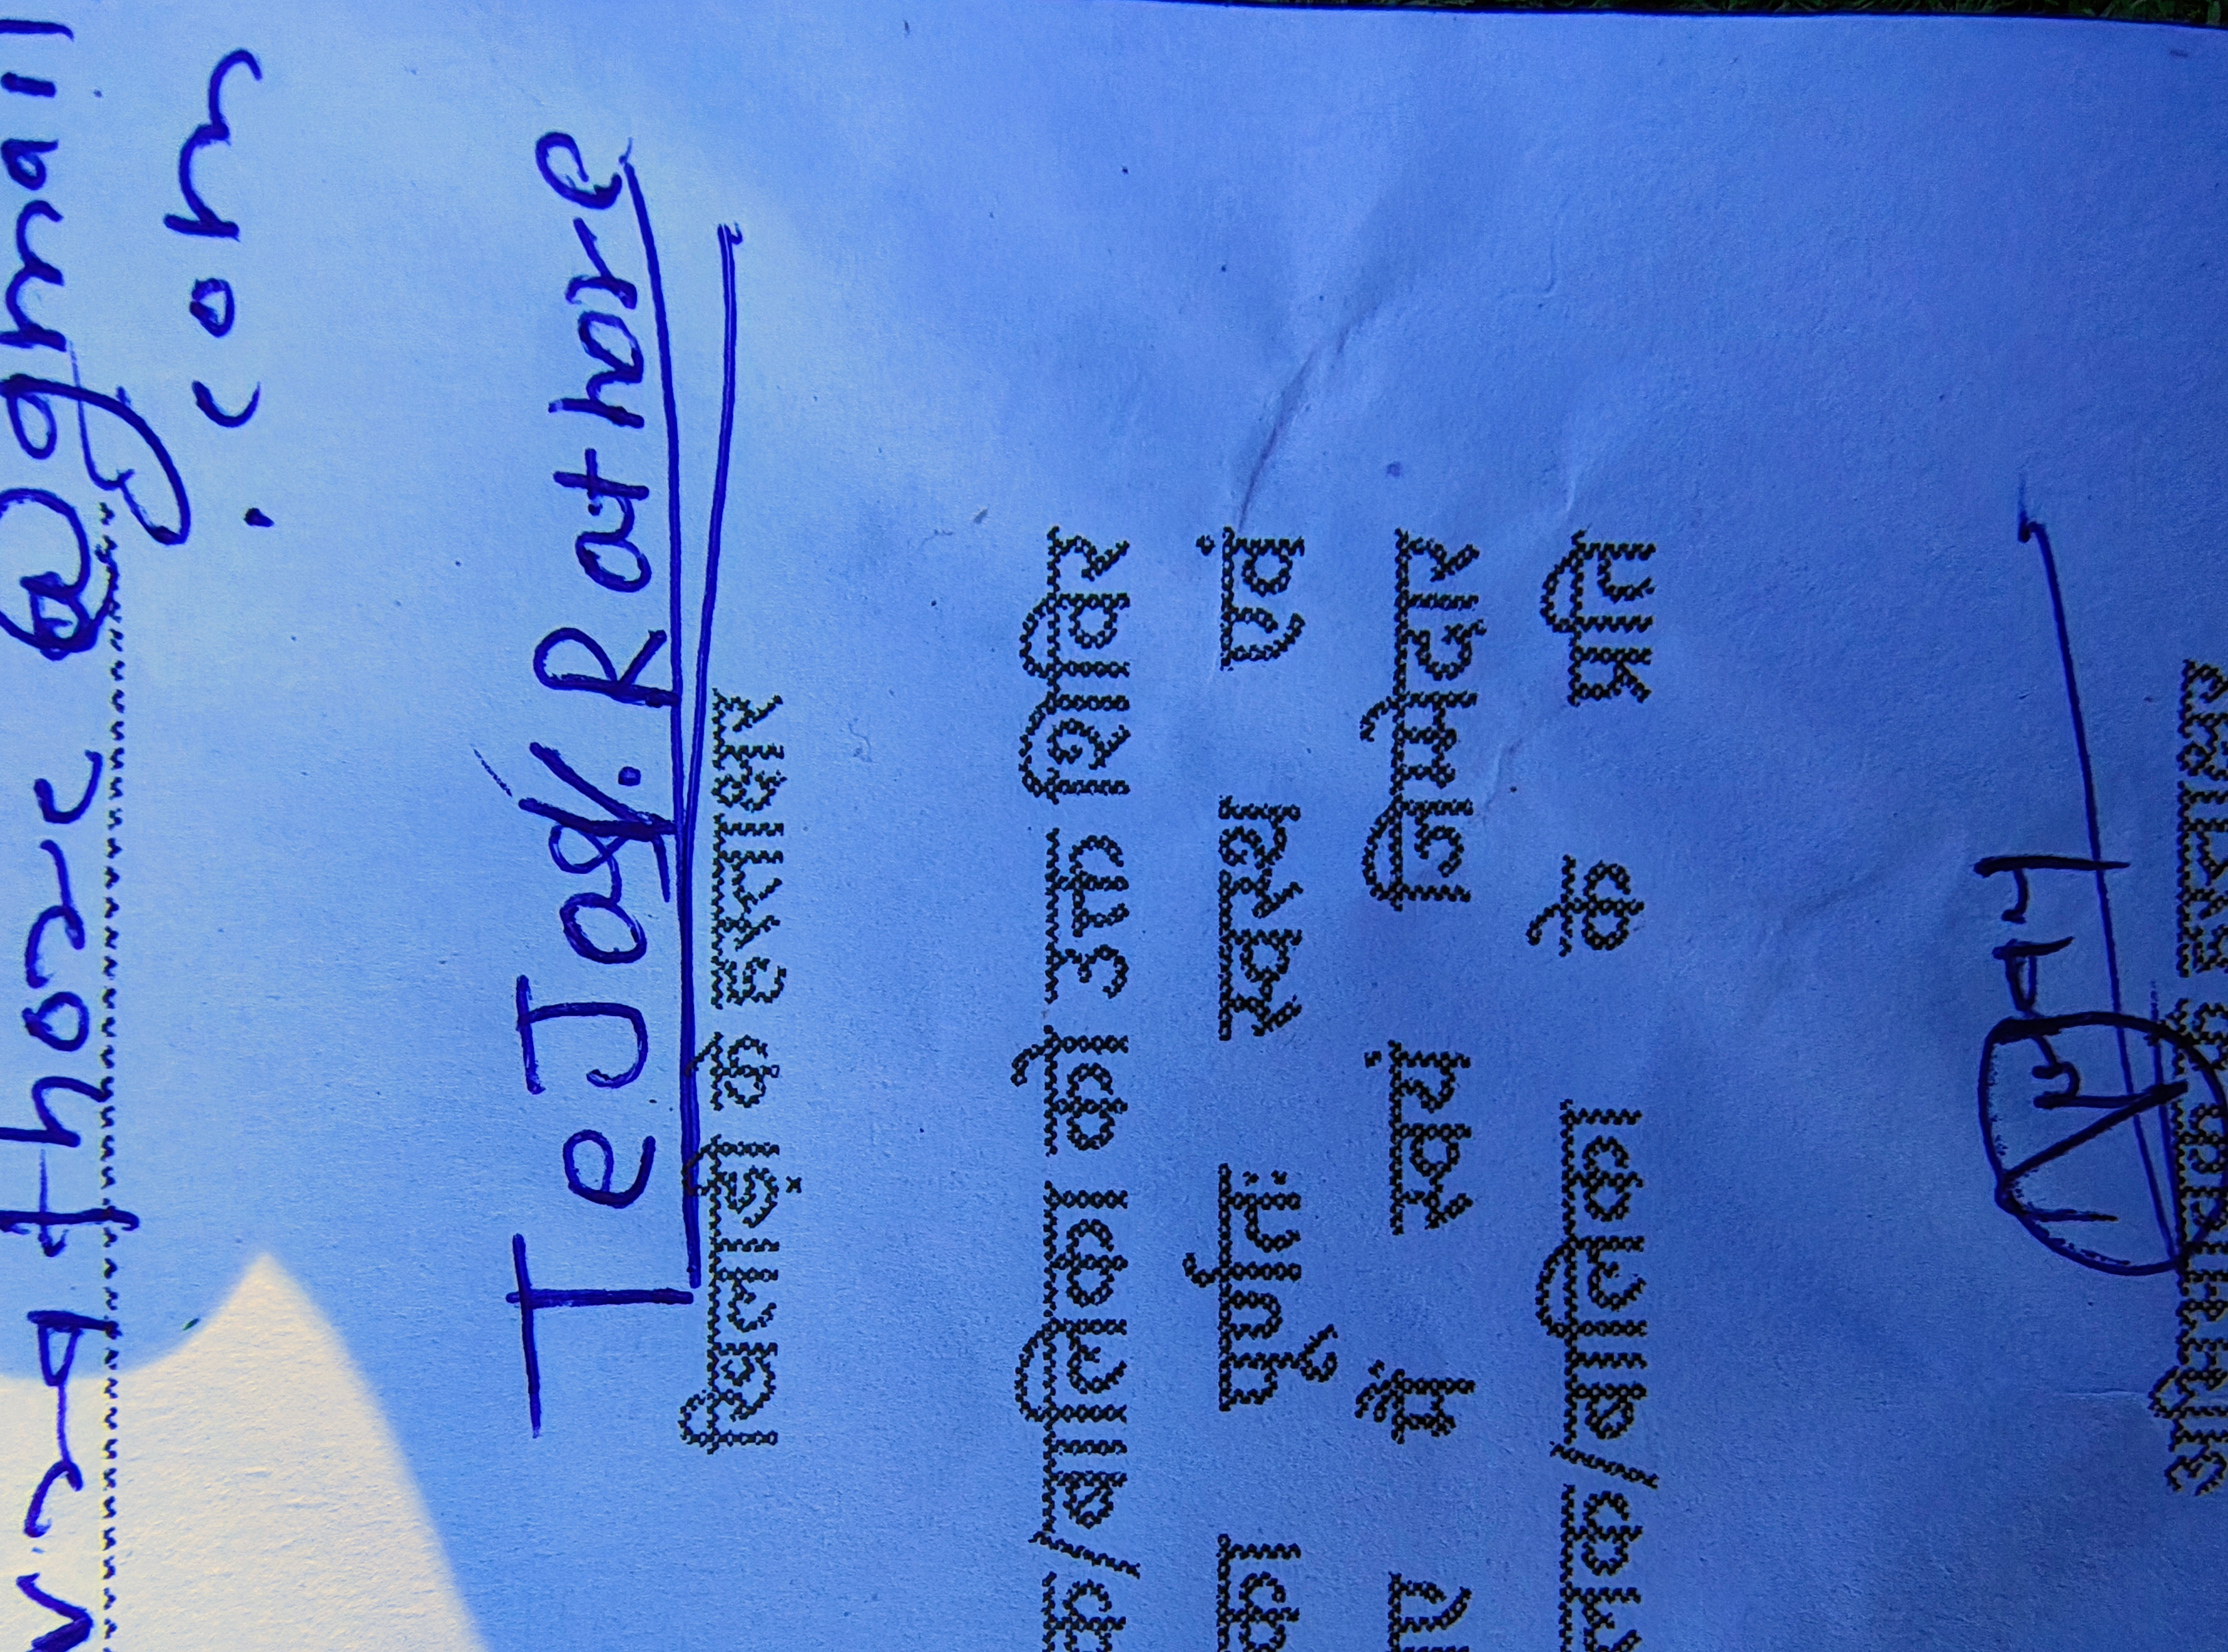 rathore@gmail
.com
Tejas. Rathore
खिलाड़ी के हस्ताक्षर
क/बालिका को उक्त शिविर
का पूर्णतः स्वस्थ एवं
ए में स्वयं जिम्मेदार
लक/बालिका के प्रति
अभिभावक के हस्ताक्षर